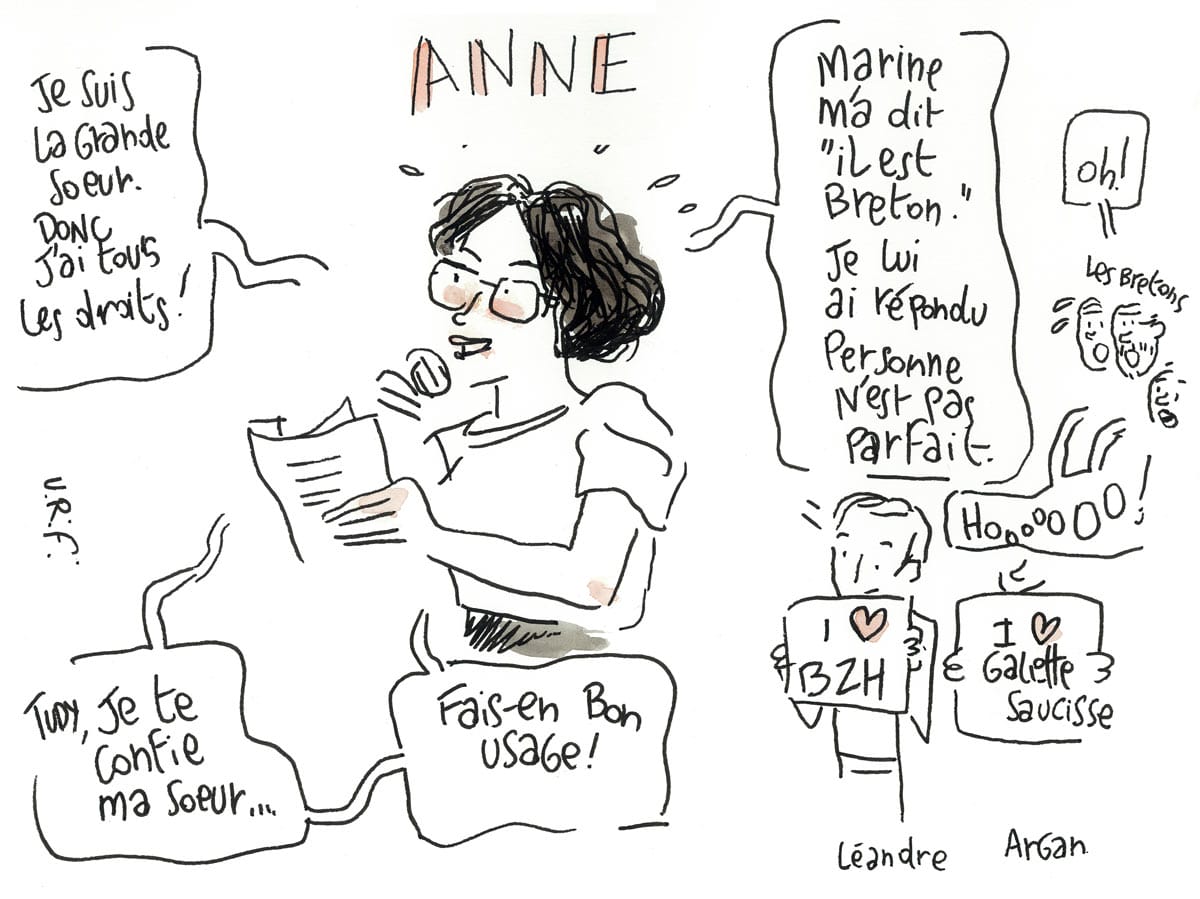 ANNE
Je suis
la grande
soeur.
Donc
j'ai tous
les droits!
Marine
m'a dit
"il est
Breton."
Je lui
ai répondu
Personne
n'est pas
parfait.
oh!
Les Bretons
HoooooOO!
I ♥
BZH
I ♥
Galette
Saucisse
U.R.F.
Tudy, je te
confie
ma soeur...
Fais-en Bon
usage!
Léandre
Argan